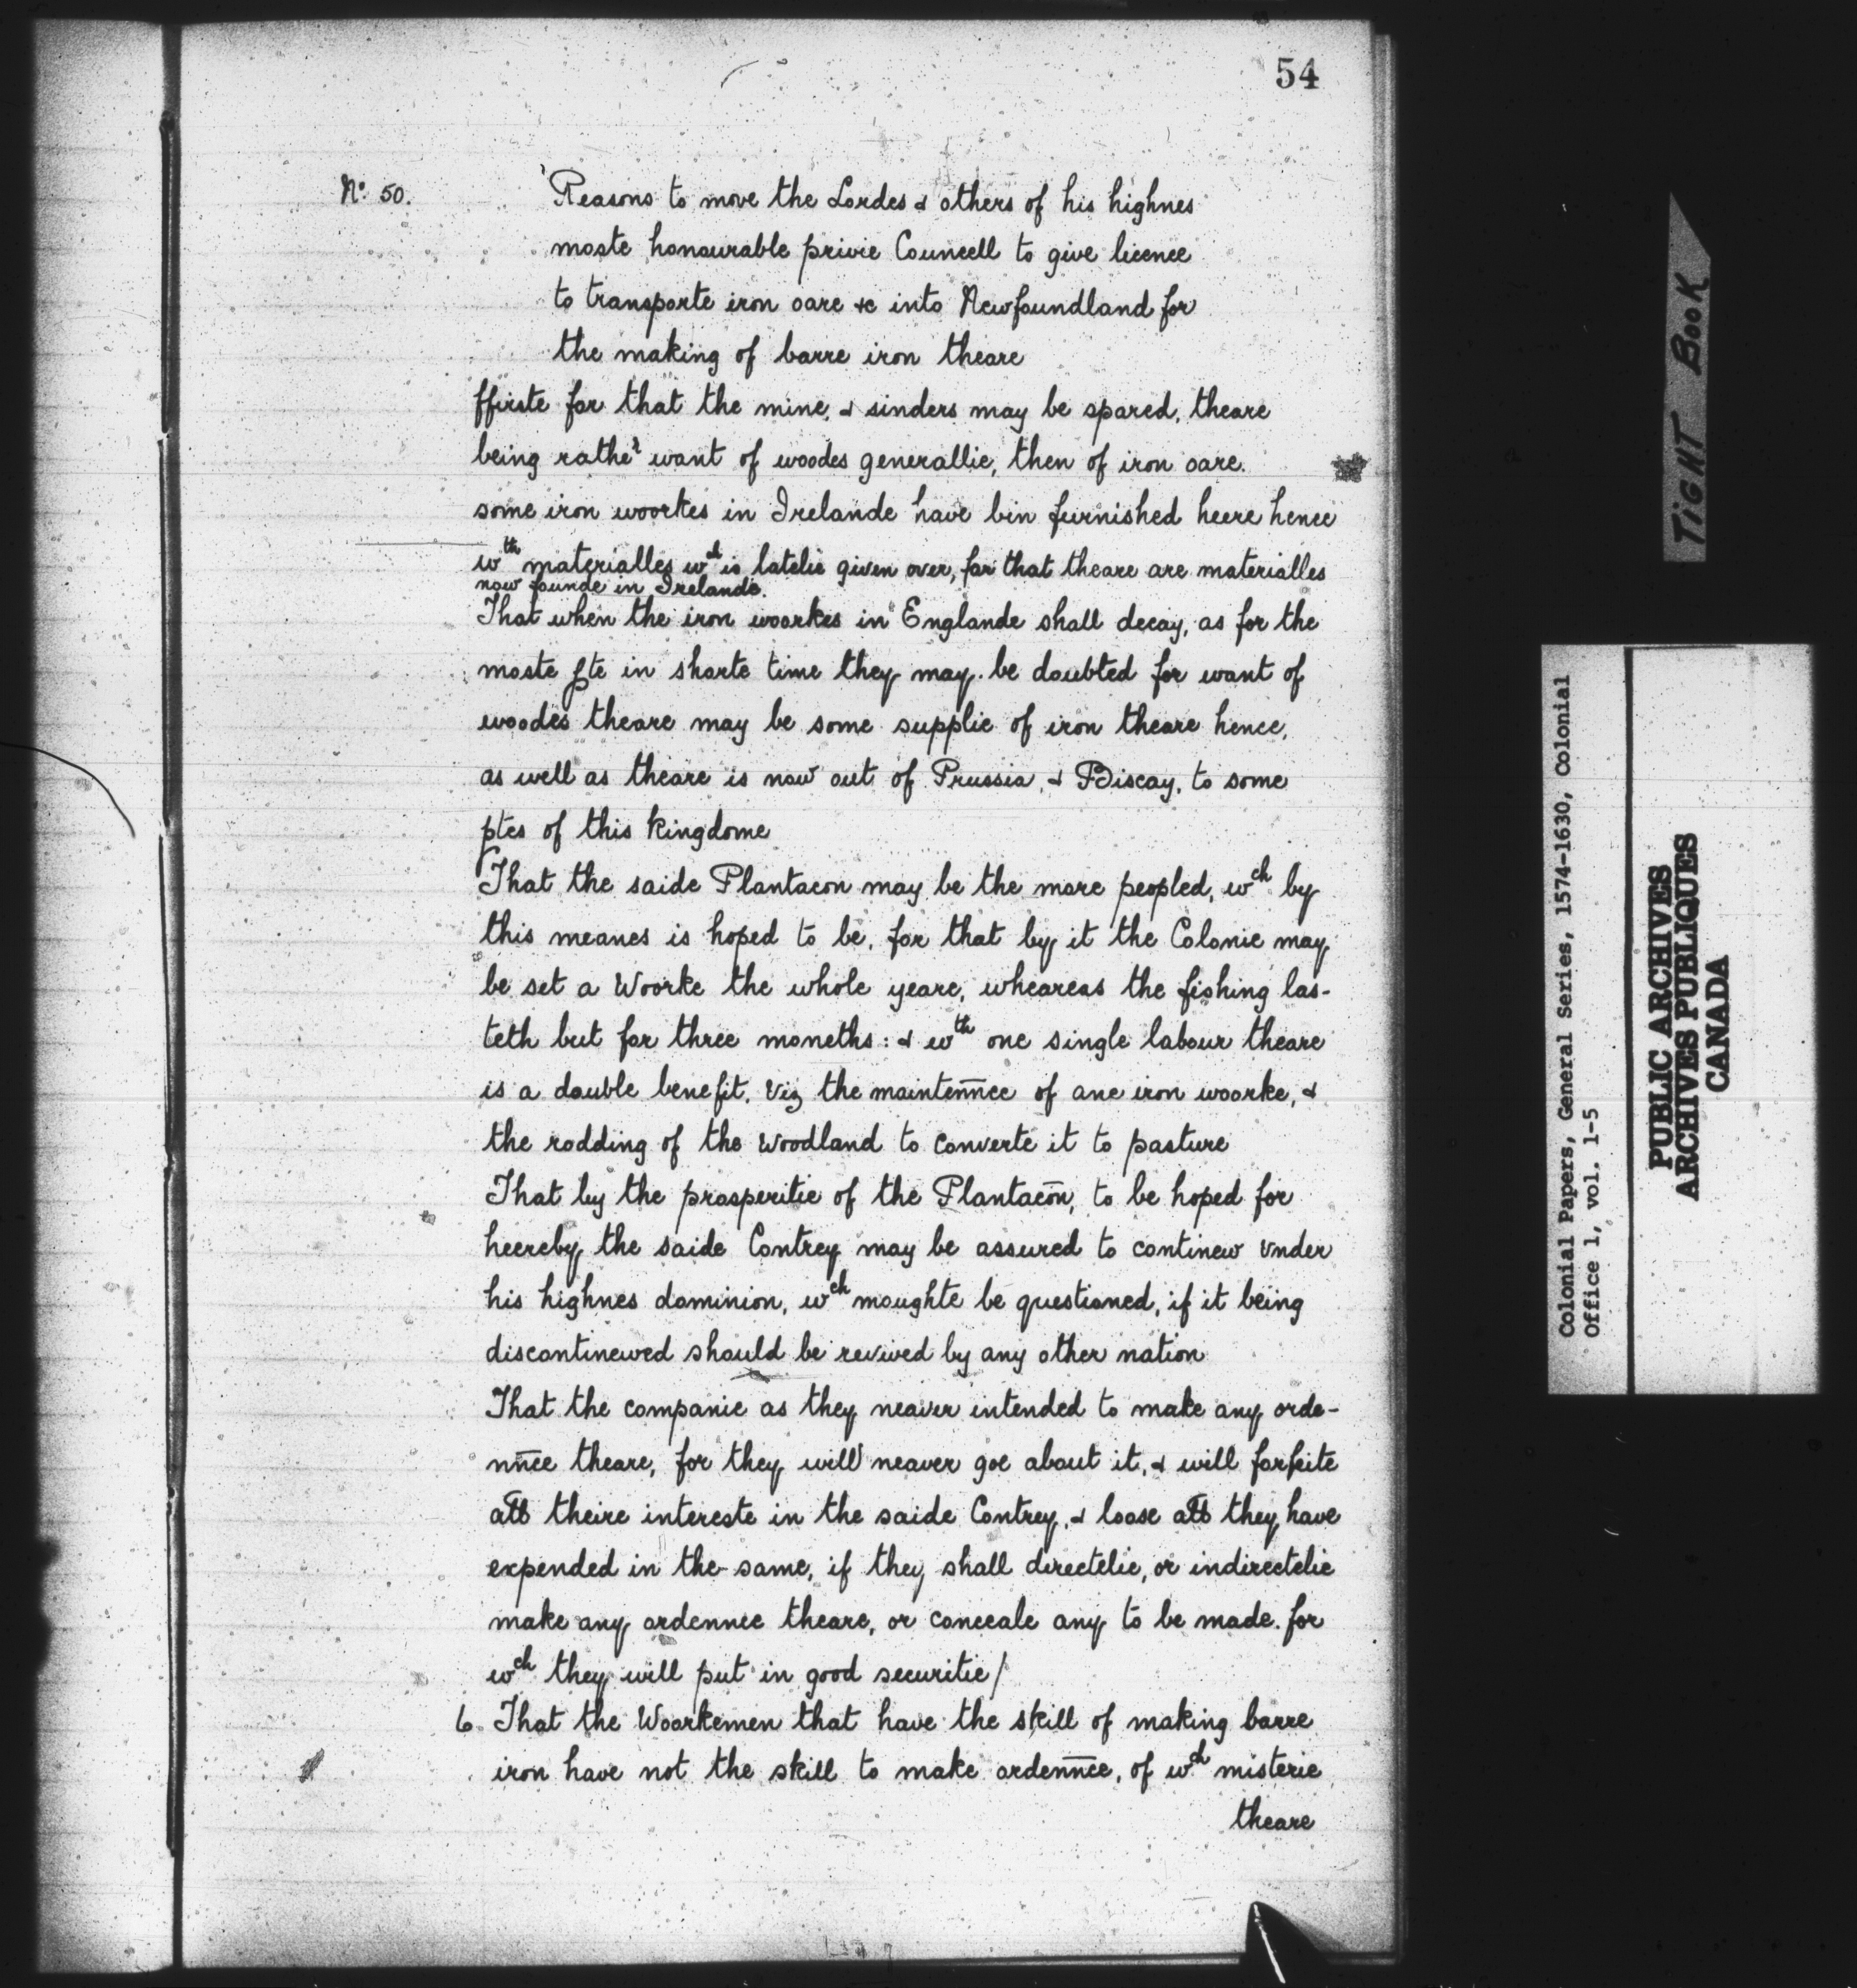 54
No. 50.
Reasons to move the Lordes & others of his highnes
moste honourable privie Councell to give licence
to transporte iron oare &c into Newfoundland for
the making of barre iron theare
ffirste for that the mine, & sinders may be spared, theare
being rather want of woodes generallie, then of iron oare.
some iron woorkes in Irelande have bin furnished heere hence
wth materialles wch is latelie given over, for that theare are materialles
now founde in Irelande.
That when the iron woorkes in Englande shall decay, as for the
moste pte in shorte time they may be doubted for want of
woodes theare may be some supplie of iron theare hence,
as well as theare is now out of Prussia, & Biscay, to some
ptes of this kingdome
That the saide Plantacon may be the more peopled, wch by
this meanes is hoped to be, for that by it the Colonie may
be set a Woorke the whole yeare, wheareas the fishing las-
teth but for three moneths: & wth one single labour theare
is a double benefit. Viz the maintenn̄ce of ane iron woorke, &
the rodding of the Woodland to converte it to pasture
That by the prosperitie of the Plantacōn, to be hoped for
heereby the saide Contrey may be assured to continew vnder
his highnes dominion, wch moughte be questioned, if it being
discontinewed should be revived by any other nation
That the companie as they neaver intended to make any orde-
nn̄ce theare, for they will neaver goe about it, & will forfeite
all theire intereste in the saide Contrey, & loose all they have
expended in the same, if they shall directelie, or indirectelie
make any ordennce theare, or conceale any to be made. for
wch they will put in good securitie/
6. That the Woorkemen that have the skill of making barre
iron have not the skill to make ordenn̄ce, of wch misterie
theare
TIGHT BOOK
Colonial Papers, General Series, 1574-1630, Colonial
Office 1, vol. 1-5
PUBLIC ARCHIVES
ARCHIVES PUBLIQUES
CANADA